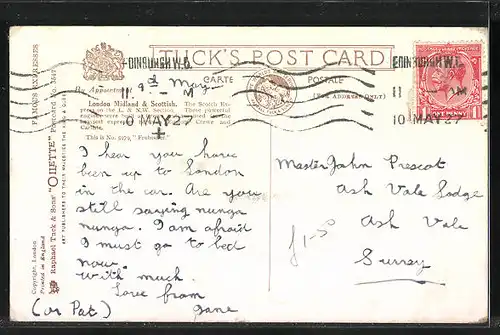 TUCK'S POST CARD
CARTE POSTALE
By Appointment
(FOR ADDRESS ONLY)
EDINBURGH W.C.
11 - AM
10 MAY 27
EDINBURGH W.C.
11 - AM
10 MAY 27
9th May
London Midland & Scottish.
(on the L. & N.W. Section.
The Scotch Ex-
press
These powerful
engines were
between Crewe and
Carlisle.
This is No. 5972, "Frobisher."
FAMOUS EXPRESSES
Raphael Tuck & Sons' "OILETTE" Postcard No. 3547
ART PUBLISHERS TO THEIR MAJESTIES THE KING & QUEEN
Copyright, London
Printed in England
I hear you have
been up to London
in the car. Are you
still saying nunga
nunga. I am afraid
I must go to bed
now.
With much
love from
Jane
(or Pat)
Master John Prescot
Ash Vale Lodge
Ash Vale
Surrey
£1-50
ONE PENNY